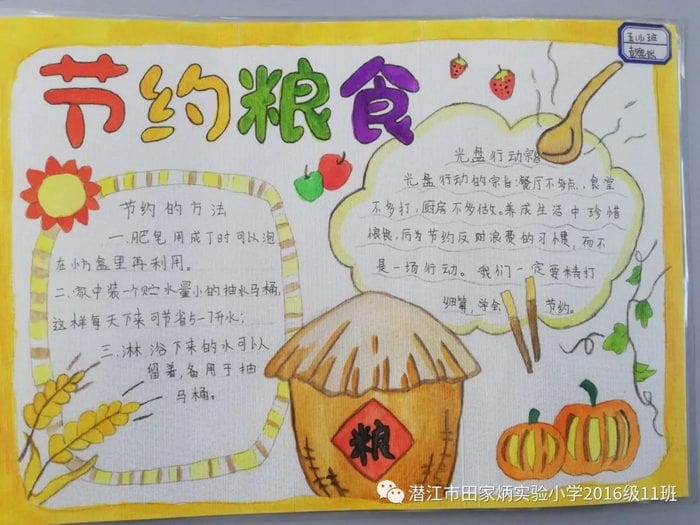 节约粮食
节约的方法
一.肥皂用成丁时可以泡
在小方盒里再利用。
二.家中装一个贮水量小的抽水马桶,
这样每天下来可节省5-7升水;
三.淋浴下来的水可以
留着,备用于抽
马桶。
光盘行动宗旨
光盘行动的宗旨:餐厅不多点,食堂
不多打,厨房不多做。养成生活中珍惜
粮食、厉行节约反对浪费的习惯,而不
是一场行动。我们一定要精打
细算,学会节约。
粮
潜江市田家炳实验小学2016级11班